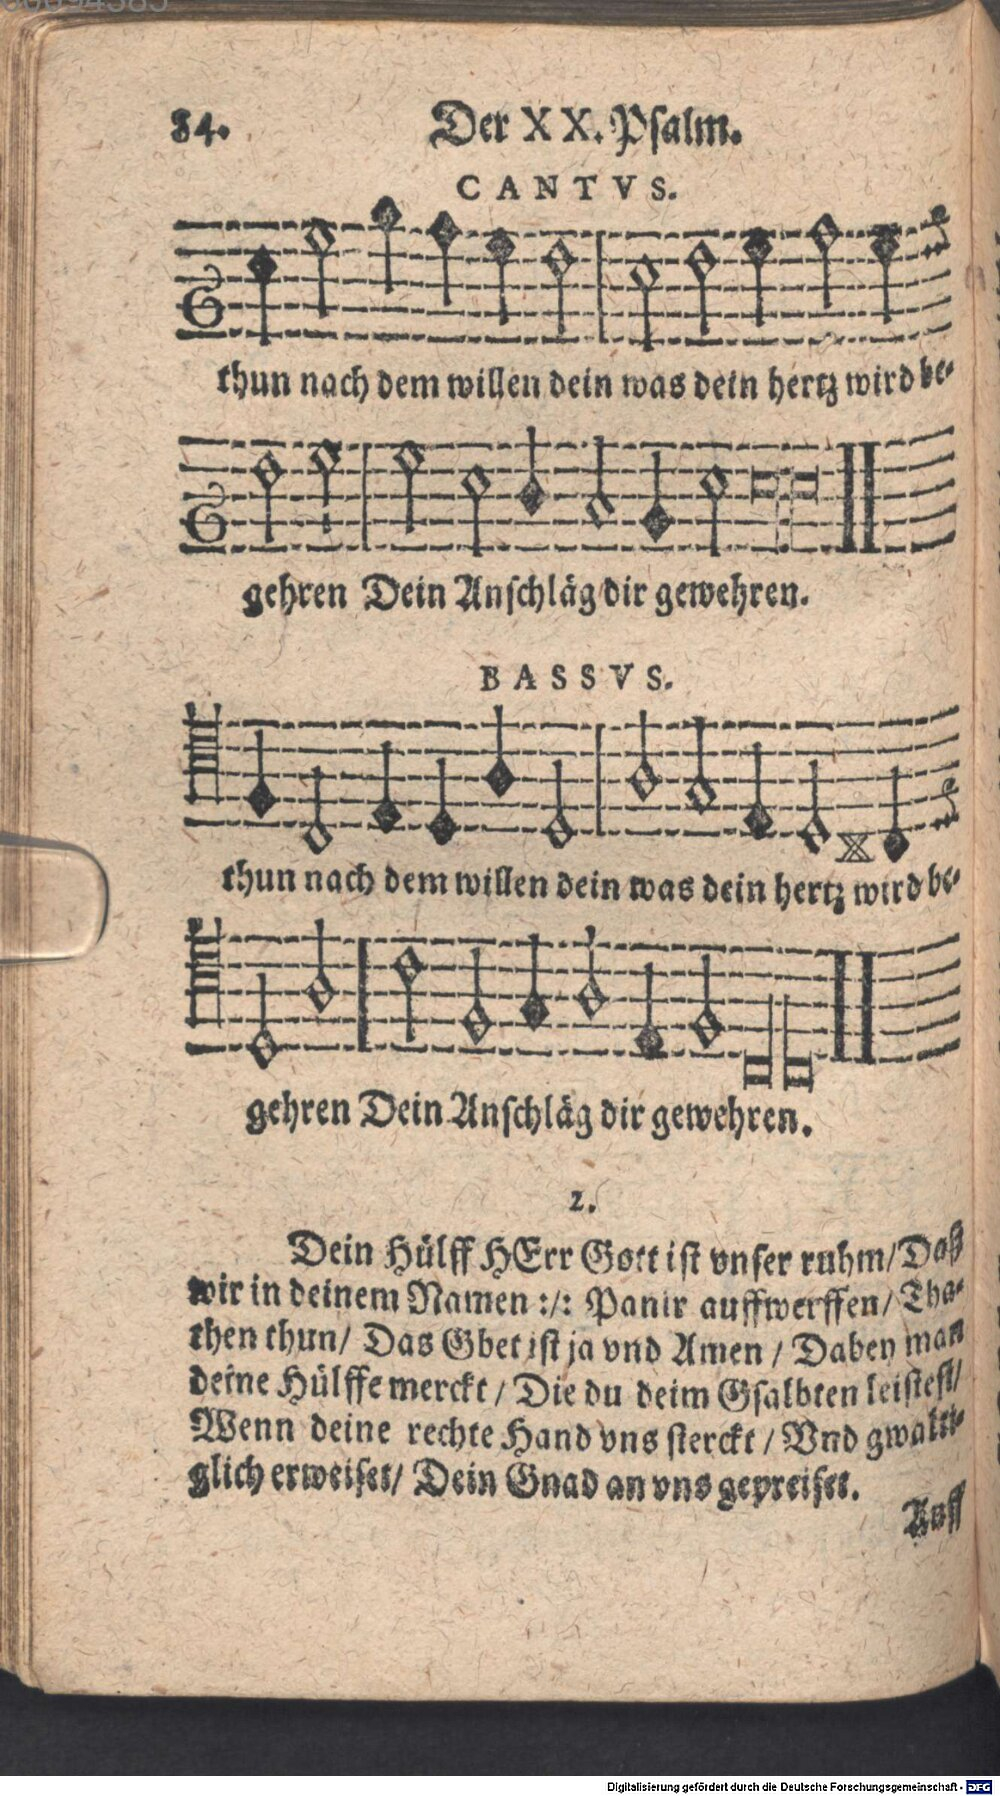 84. Der XX. Psalm.
CANTVS.
thun nach dem willen dein was dein hertz wird be-
gehren Dein Anschläg dir gewehren.
BASSVS.
thun nach dem willen dein was dein hertz wird be-
gehren Dein Anschläg dir gewehren.
2.
Dein Hülff HErr Gott ist vnser ruhm/ Daß
wir in deinem Namen :/: Panir auffwerffen/ Tha-
then thun/ Das Gbet ist ja vnd Amen / Dabey man
deine Hülffe merckt / Die du deim Gsalbten leistest/
Wenn deine rechte Hand vns sterckt / Vnd gwalti-
glich erweiset/ Dein Gnad an vns gepreiset.
Auff
Digitalisierung gefördert durch die Deutsche Forschungsgemeinschaft - DFG